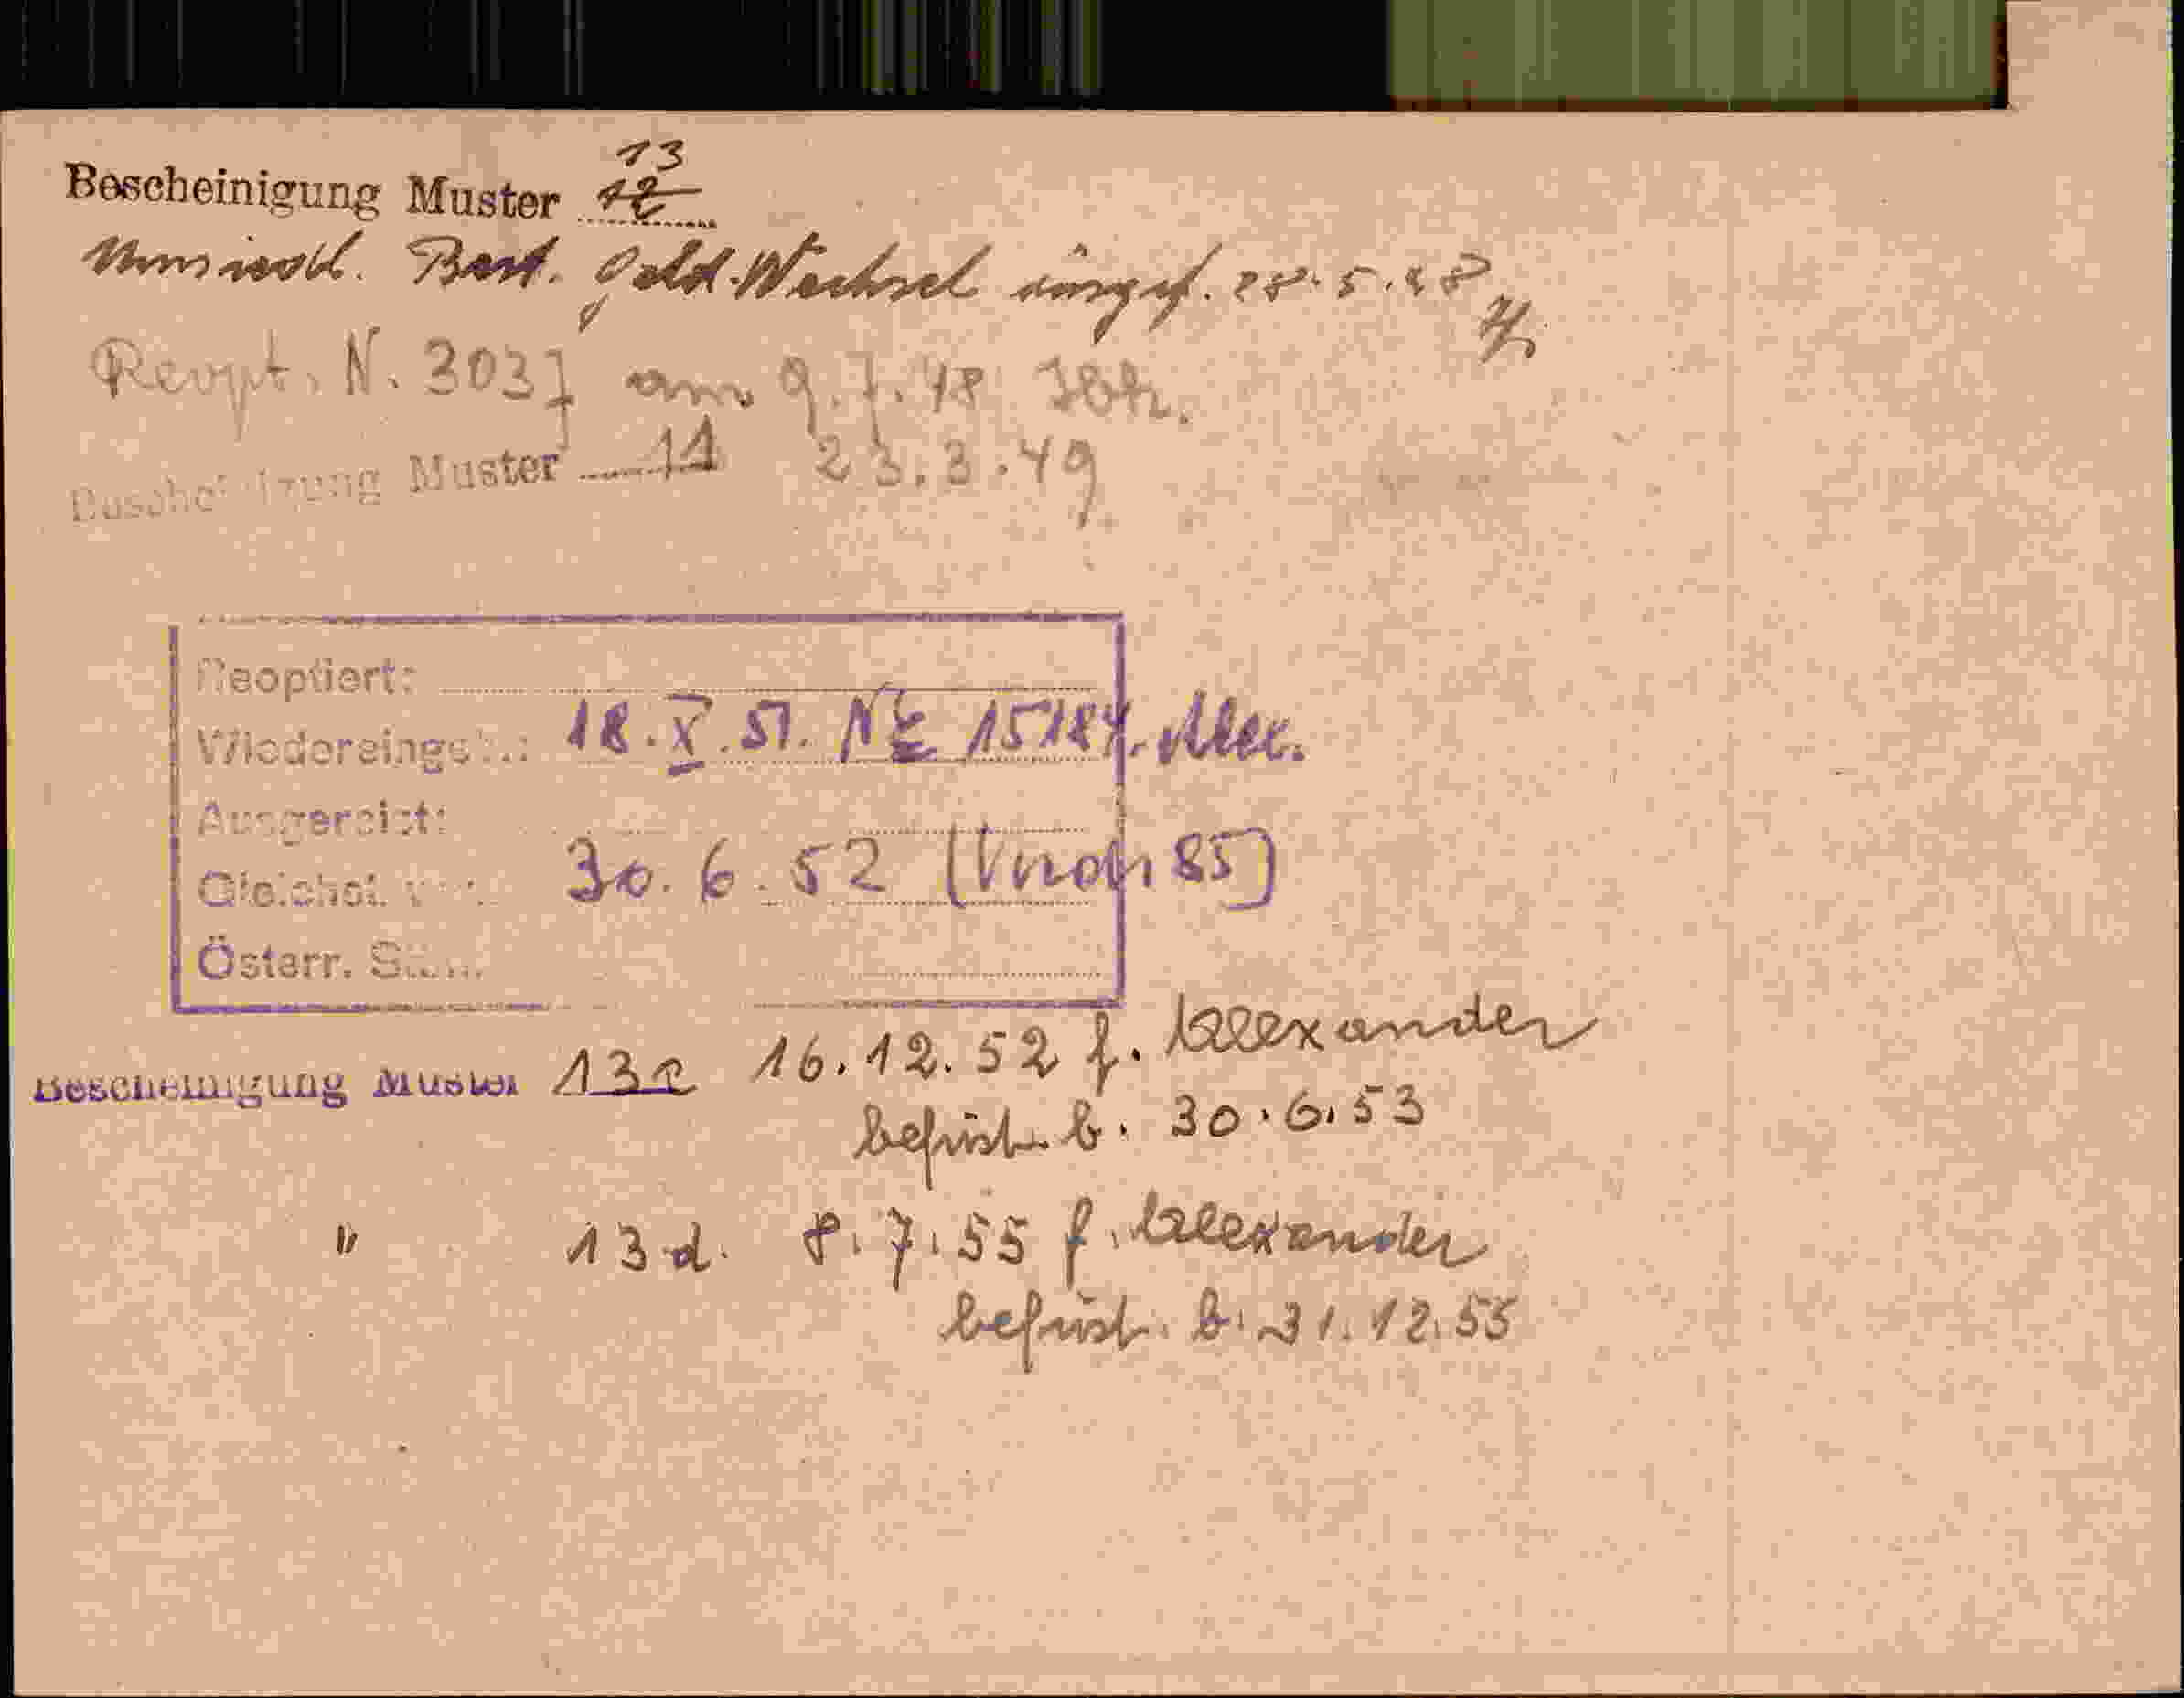 13
Bescheinigung Muster 12
Umsiedl. Best. Geld-Wechsel ausgef. 28.5.48
Reopt. N. 3037 am 9.7.48
Bescheinigung Muster 11 23.3.49
Reoptiert:
Wiedereingeb.: 18.X.51. Nr 15184. Alex.
Ausgereist:
Gleichst. v. 30.6.52 (Vnoh 85)
Österr. Stbn.
Bescheinigung Muster 13c 16.12.52 f. Alexander
befrist. b. 30.6.53
" 13d. 8.7.55 f. Alexander
befrist. b. 31.12.55